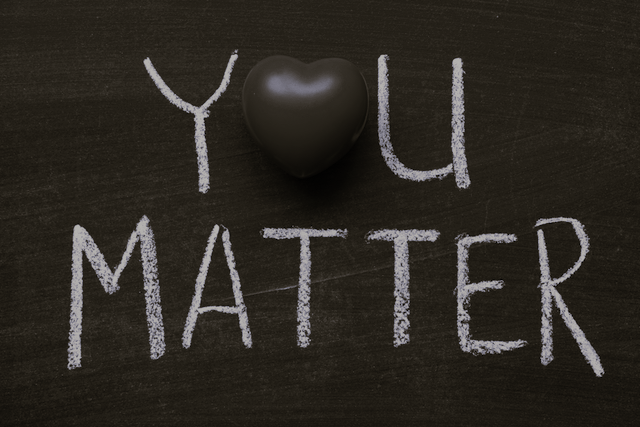 Y❤U
MATTER